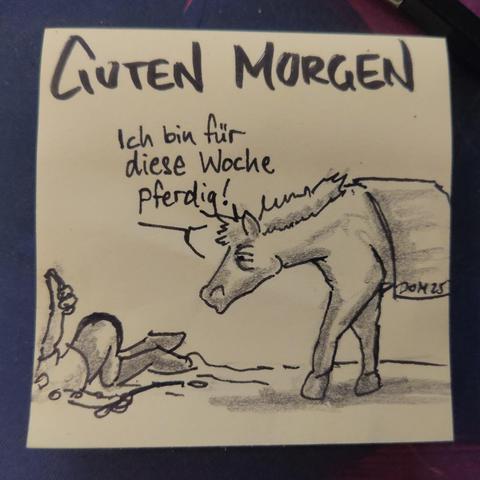 GUTEN MORGEN
Ich bin für
diese Woche
pferdig!
DOM25